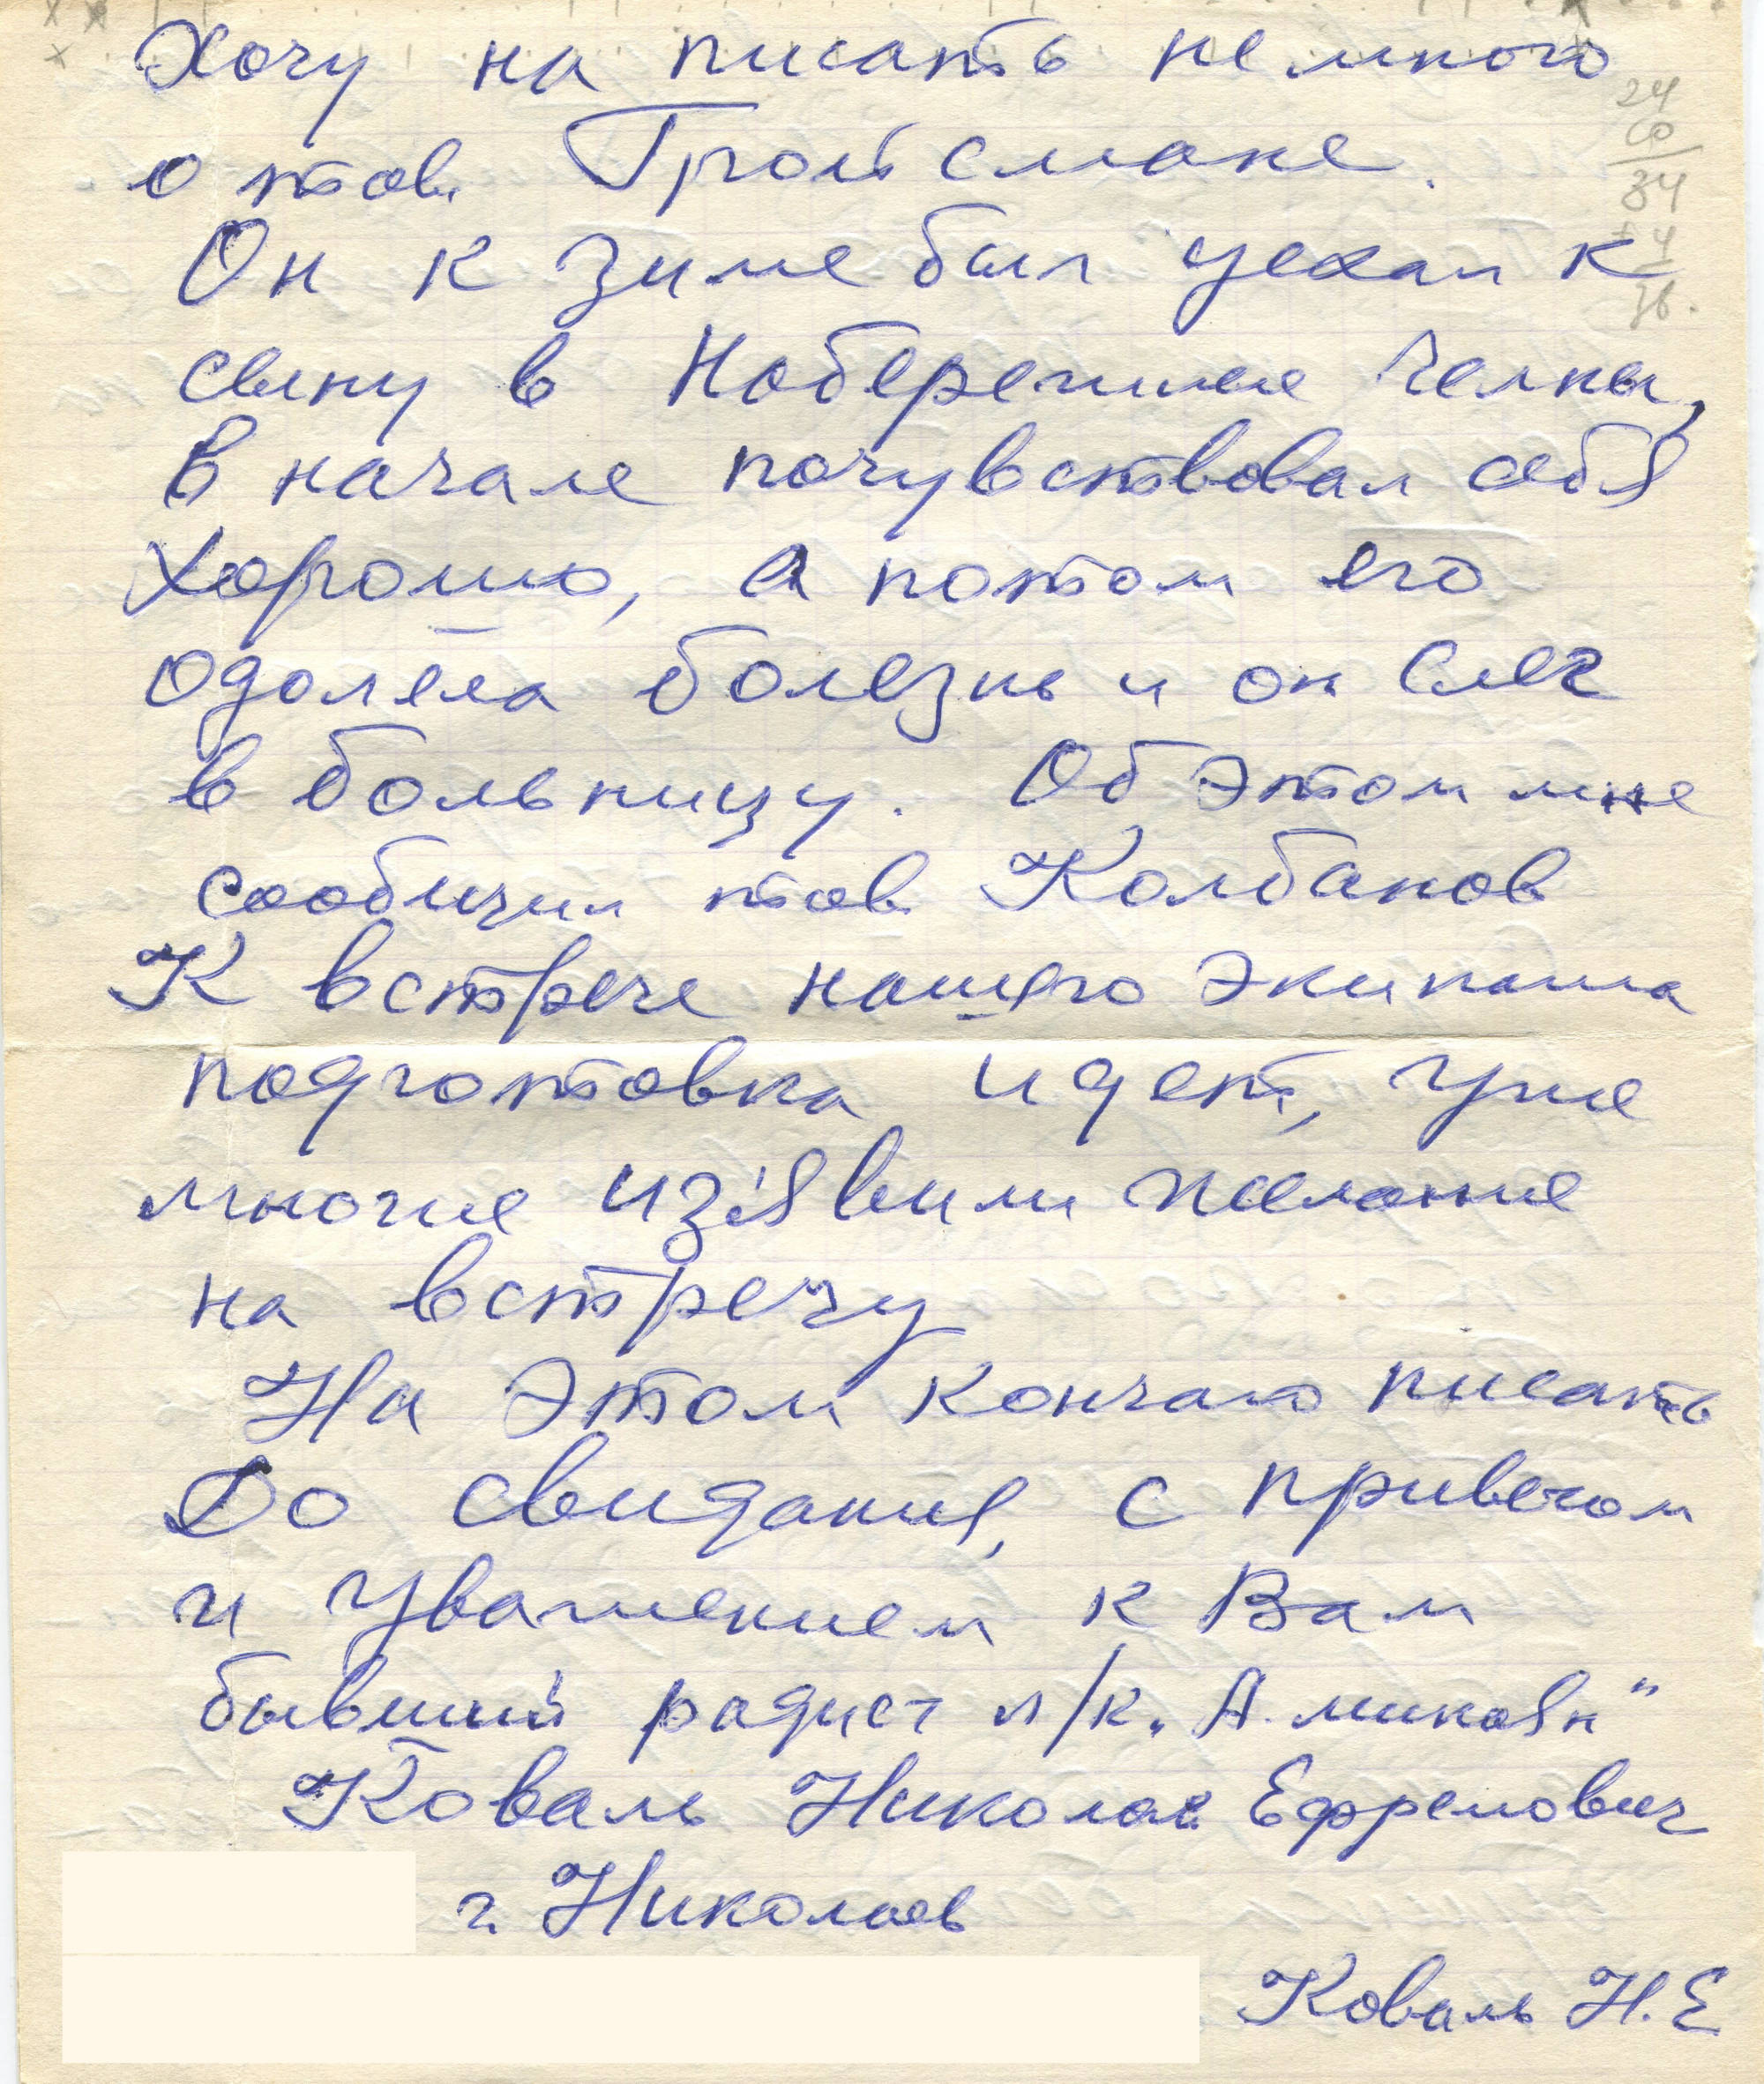 Хочу на писать не много
24
о тов. Гройсмане.
60
84
Он к зиме был уехал к
+4
сыну в Набережные Челны,
в начале почувствовал себя
хорошо, а потом его
одолела болезнь и он слег
в больницу. Об этом мне
сообщил тов. Колбанов
К встрече нашего экипажа
подготовка идет, уже
многие из'явили желание
на встречу
На этом кончаю писать
До свидания, с приветом
и уважением к Вам
бывший радист л/к „А. Микоян"
Коваль Николай Ефремович
г. Николаев
Коваль Н.Е